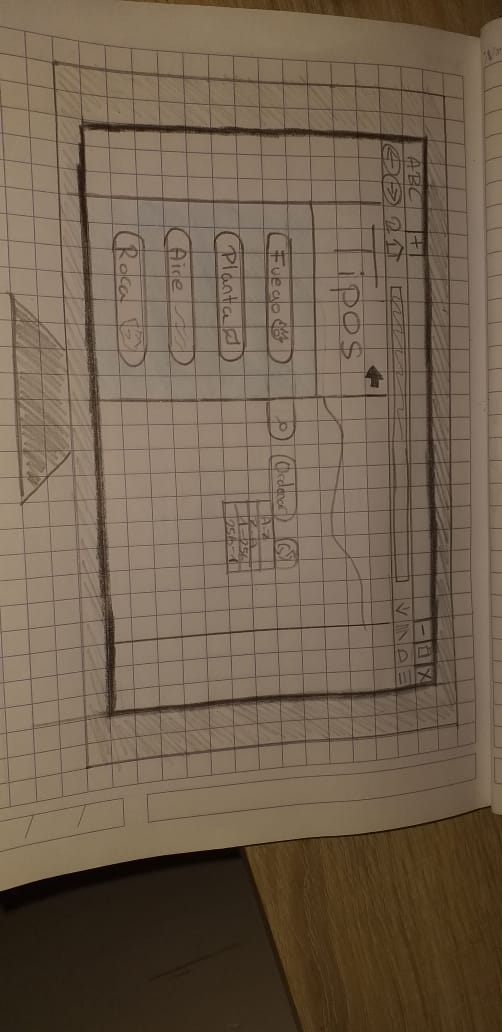 ABC +
- X
Tipos
Fuego
Planta
Aire
Roca
Ordenar
A-Z
Z-A
1-151
151-1